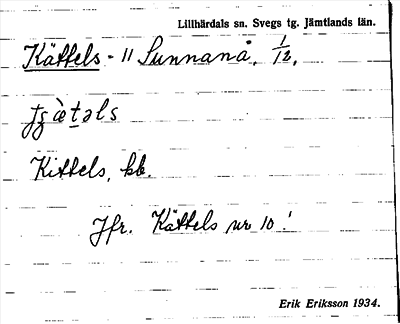 Lillhärdals sn. Svegs tg. Jämtlands län.
Kättels - 11 Sunnanå, 1/12.
Kittels, kb.
Jfr. Kättels nr 10!
Erik Eriksson 1934.